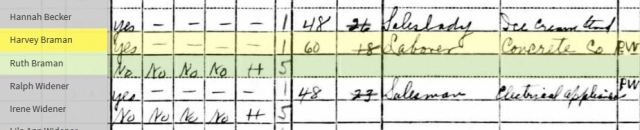 Hannah Becker yes – – – – 1 48 26 Saleslady Ice Cream
Harvey Braman yes – – – – 1 60 18 Laborer Concrete Co PW
Ruth Braman No No No No H 5
Ralph Widener yes – – – – 1 48 23 Salesman Electrical appliances PW
Irene Widener No No No No H 5